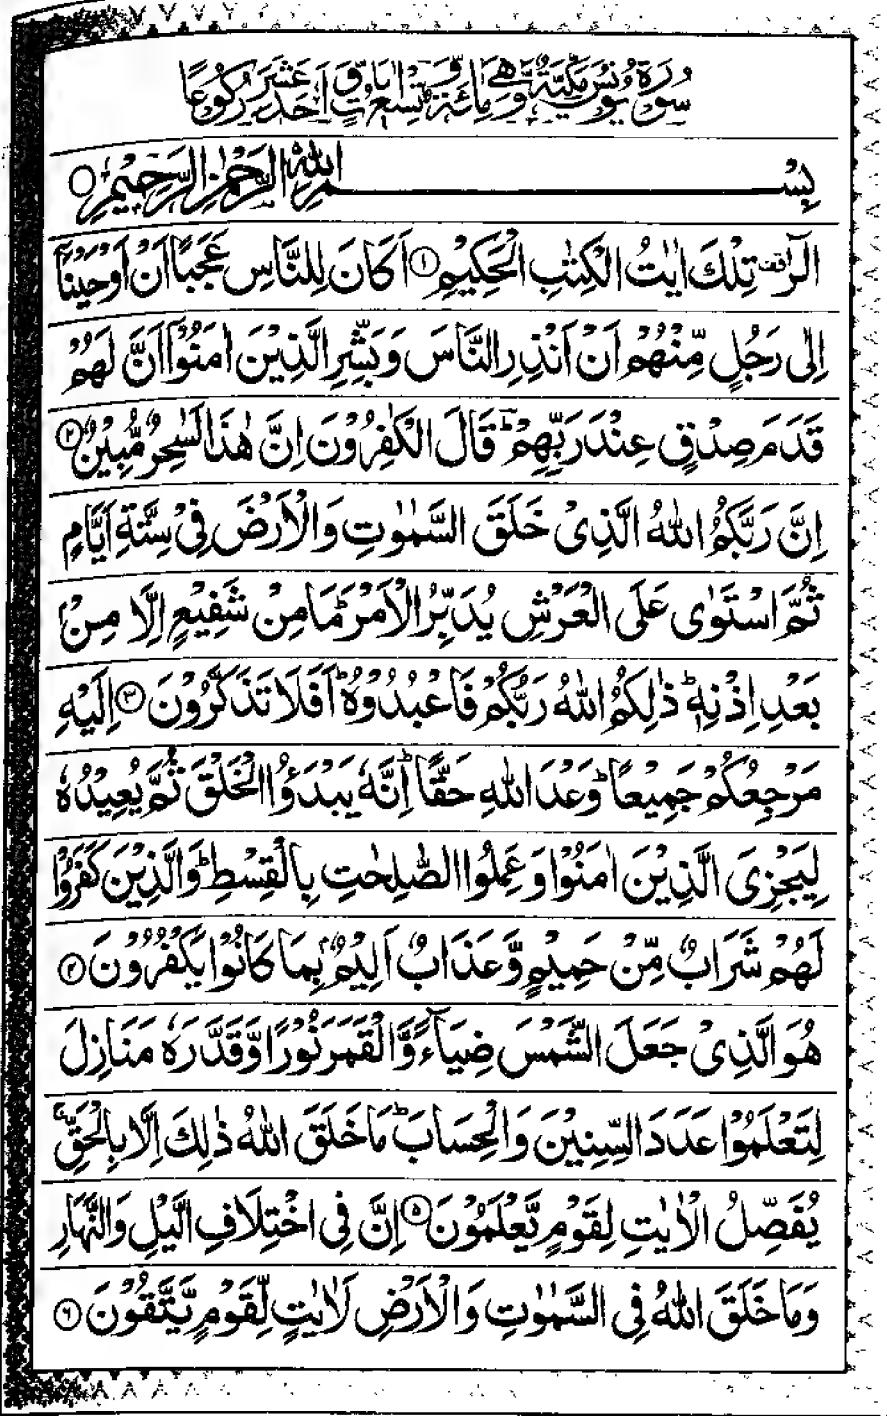 سُوْرَةُ يُوْنُسَ مَكِّيَّةٌ وَّهِيَ مِائَةٌ وَّتِسْعُ اٰيَاتٍ وَّاَحَدَ عَشَرَ رُكُوْعًا
بِسْمِ اللّٰهِ الرَّحْمٰنِ الرَّحِيْمِ ○
الٓرٰ ۟ تِلْكَ اٰيٰتُ الْكِتٰبِ الْحَكِيْمِ ① اَكَانَ لِلنَّاسِ عَجَبًا اَنْ اَوْحَيْنَاۤ
اِلٰى رَجُلٍ مِّنْهُمْ اَنْ اَنْذِرِ النَّاسَ وَبَشِّرِ الَّذِيْنَ اٰمَنُوْۤا اَنَّ لَهُمْ
قَدَمَ صِدْقٍ عِنْدَ رَبِّهِمْ ؕؔ قَالَ الْكٰفِرُوْنَ اِنَّ هٰذَا لَسٰحِرٌ مُّبِيْنٌ ②
اِنَّ رَبَّكُمُ اللّٰهُ الَّذِيْ خَلَقَ السَّمٰوٰتِ وَالْاَرْضَ فِيْ سِتَّةِ اَيَّامٍ
ثُمَّ اسْتَوٰى عَلَى الْعَرْشِ يُدَبِّرُ الْاَمْرَ ؕ مَا مِنْ شَفِيْعٍ اِلَّا مِنْۢ
بَعْدِ اِذْنِهٖ ؕ ذٰلِكُمُ اللّٰهُ رَبُّكُمْ فَاعْبُدُوْهُ ؕ اَفَلَا تَذَكَّرُوْنَ ③ اِلَيْهِ
مَرْجِعُكُمْ جَمِيْعًا ؕ وَعْدَ اللّٰهِ حَقًّا ؕ اِنَّهٗ يَبْدَؤُا الْخَلْقَ ثُمَّ يُعِيْدُهٗ
لِيَجْزِيَ الَّذِيْنَ اٰمَنُوْا وَعَمِلُوا الصّٰلِحٰتِ بِالْقِسْطِ ؕ وَالَّذِيْنَ كَفَرُوْا
لَهُمْ شَرَابٌ مِّنْ حَمِيْمٍ وَّعَذَابٌ اَلِيْمٌۢ بِمَا كَانُوْا يَكْفُرُوْنَ ④
هُوَ الَّذِيْ جَعَلَ الشَّمْسَ ضِيَآءً وَّالْقَمَرَ نُوْرًا وَّقَدَّرَهٗ مَنَازِلَ
لِتَعْلَمُوْا عَدَدَ السِّنِيْنَ وَالْحِسَابَ ؕ مَا خَلَقَ اللّٰهُ ذٰلِكَ اِلَّا بِالْحَقِّ ۚ
يُفَصِّلُ الْاٰيٰتِ لِقَوْمٍ يَّعْلَمُوْنَ ⑤ اِنَّ فِي اخْتِلَافِ الَّيْلِ وَالنَّهَارِ
وَمَا خَلَقَ اللّٰهُ فِي السَّمٰوٰتِ وَالْاَرْضِ لَاٰيٰتٍ لِّقَوْمٍ يَّتَّقُوْنَ ⑥